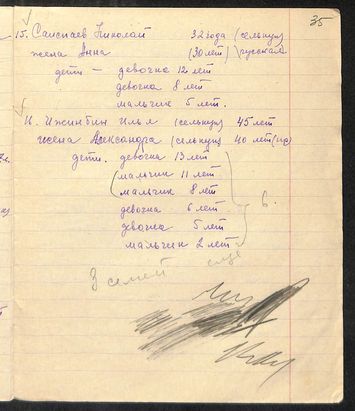 35
15. Саиспаев Николай 32 года (селькуп)
жена Анна (30 лет) русская
дети — девочка 12 лет
девочка 8 лет
мальчик 5 лет.
Ижинбин Илья (селькуп) 45 лет
жена Александра (селькуп) 40 лет
дети. девочка 13 лет
мальчик 11 лет
мальчик 8 лет
девочка 6 лет
девочка 5 лет
мальчик 2 лет
6.
3 семей еще